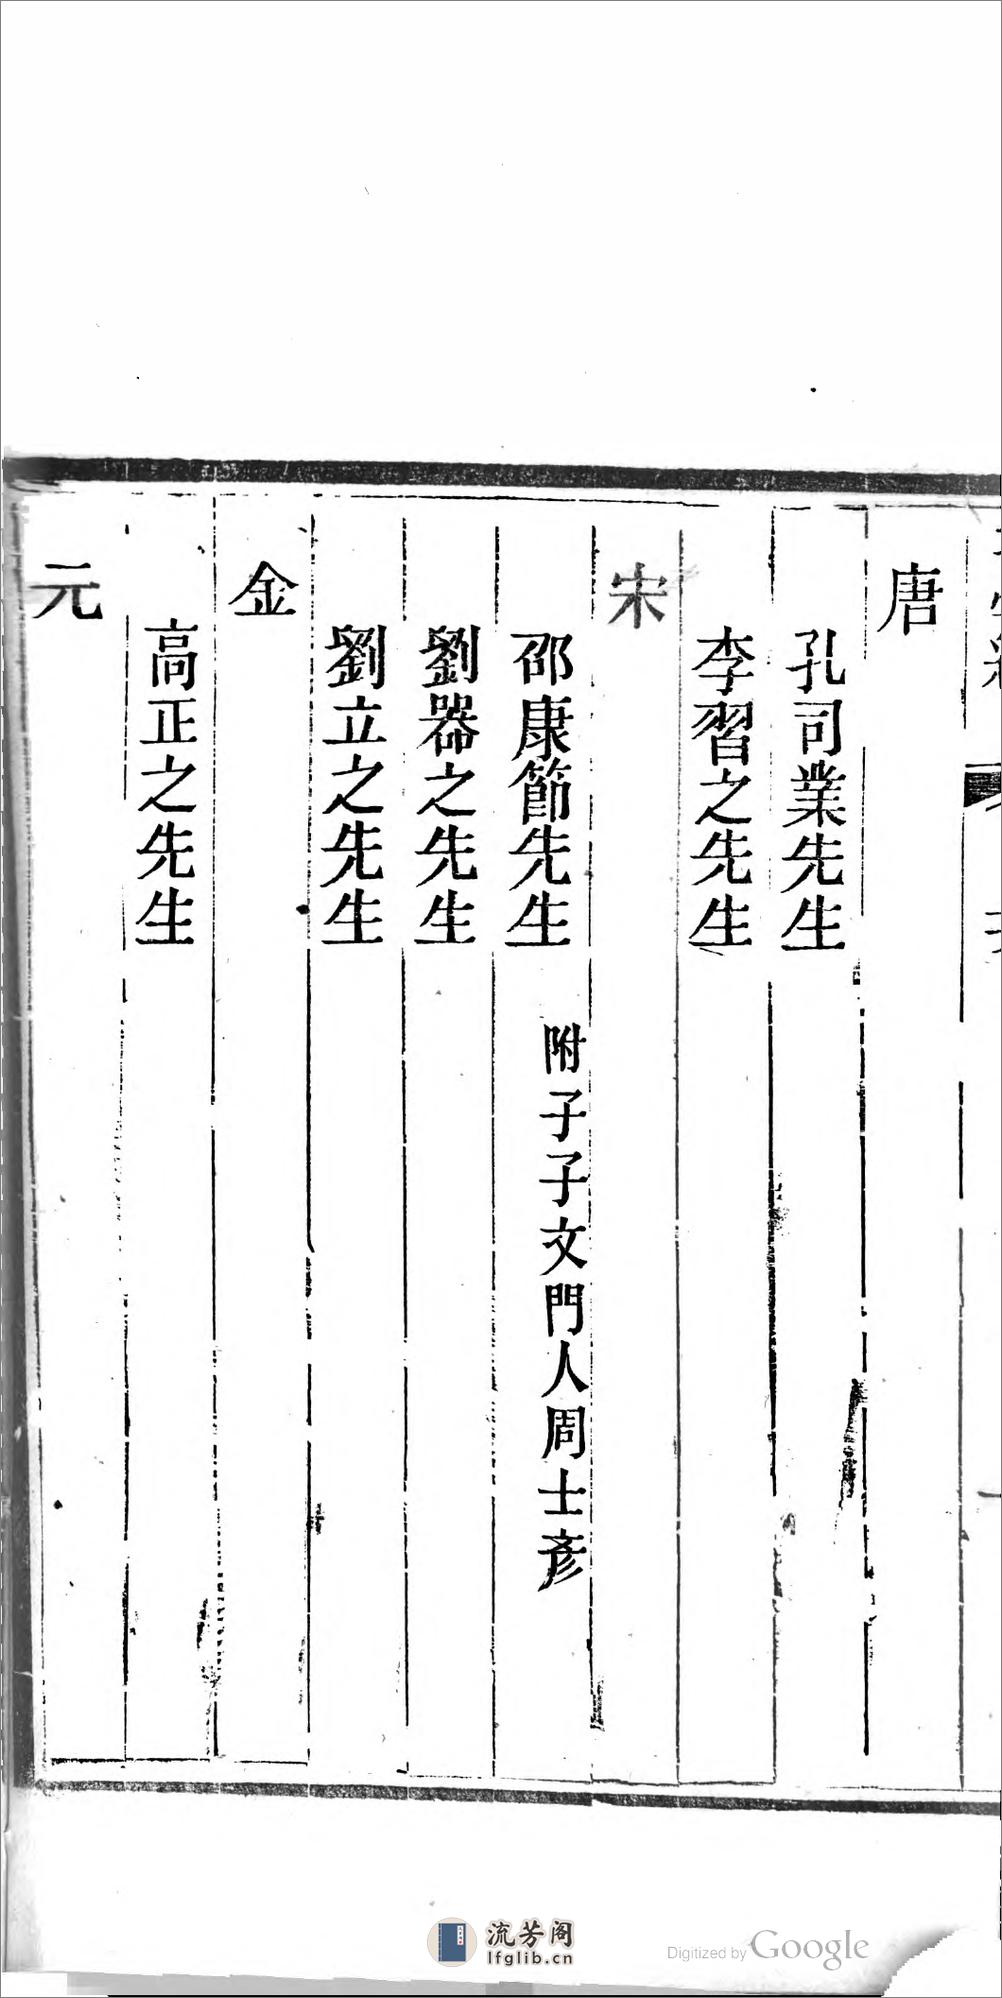 唐
孔司業先生
李習之先生
宋
邵康節先生 附子子文門人周士彥
劉器之先生
劉立之先生
金
高正之先生
元
流芳阁
lfglib.cn
Digitized by Google